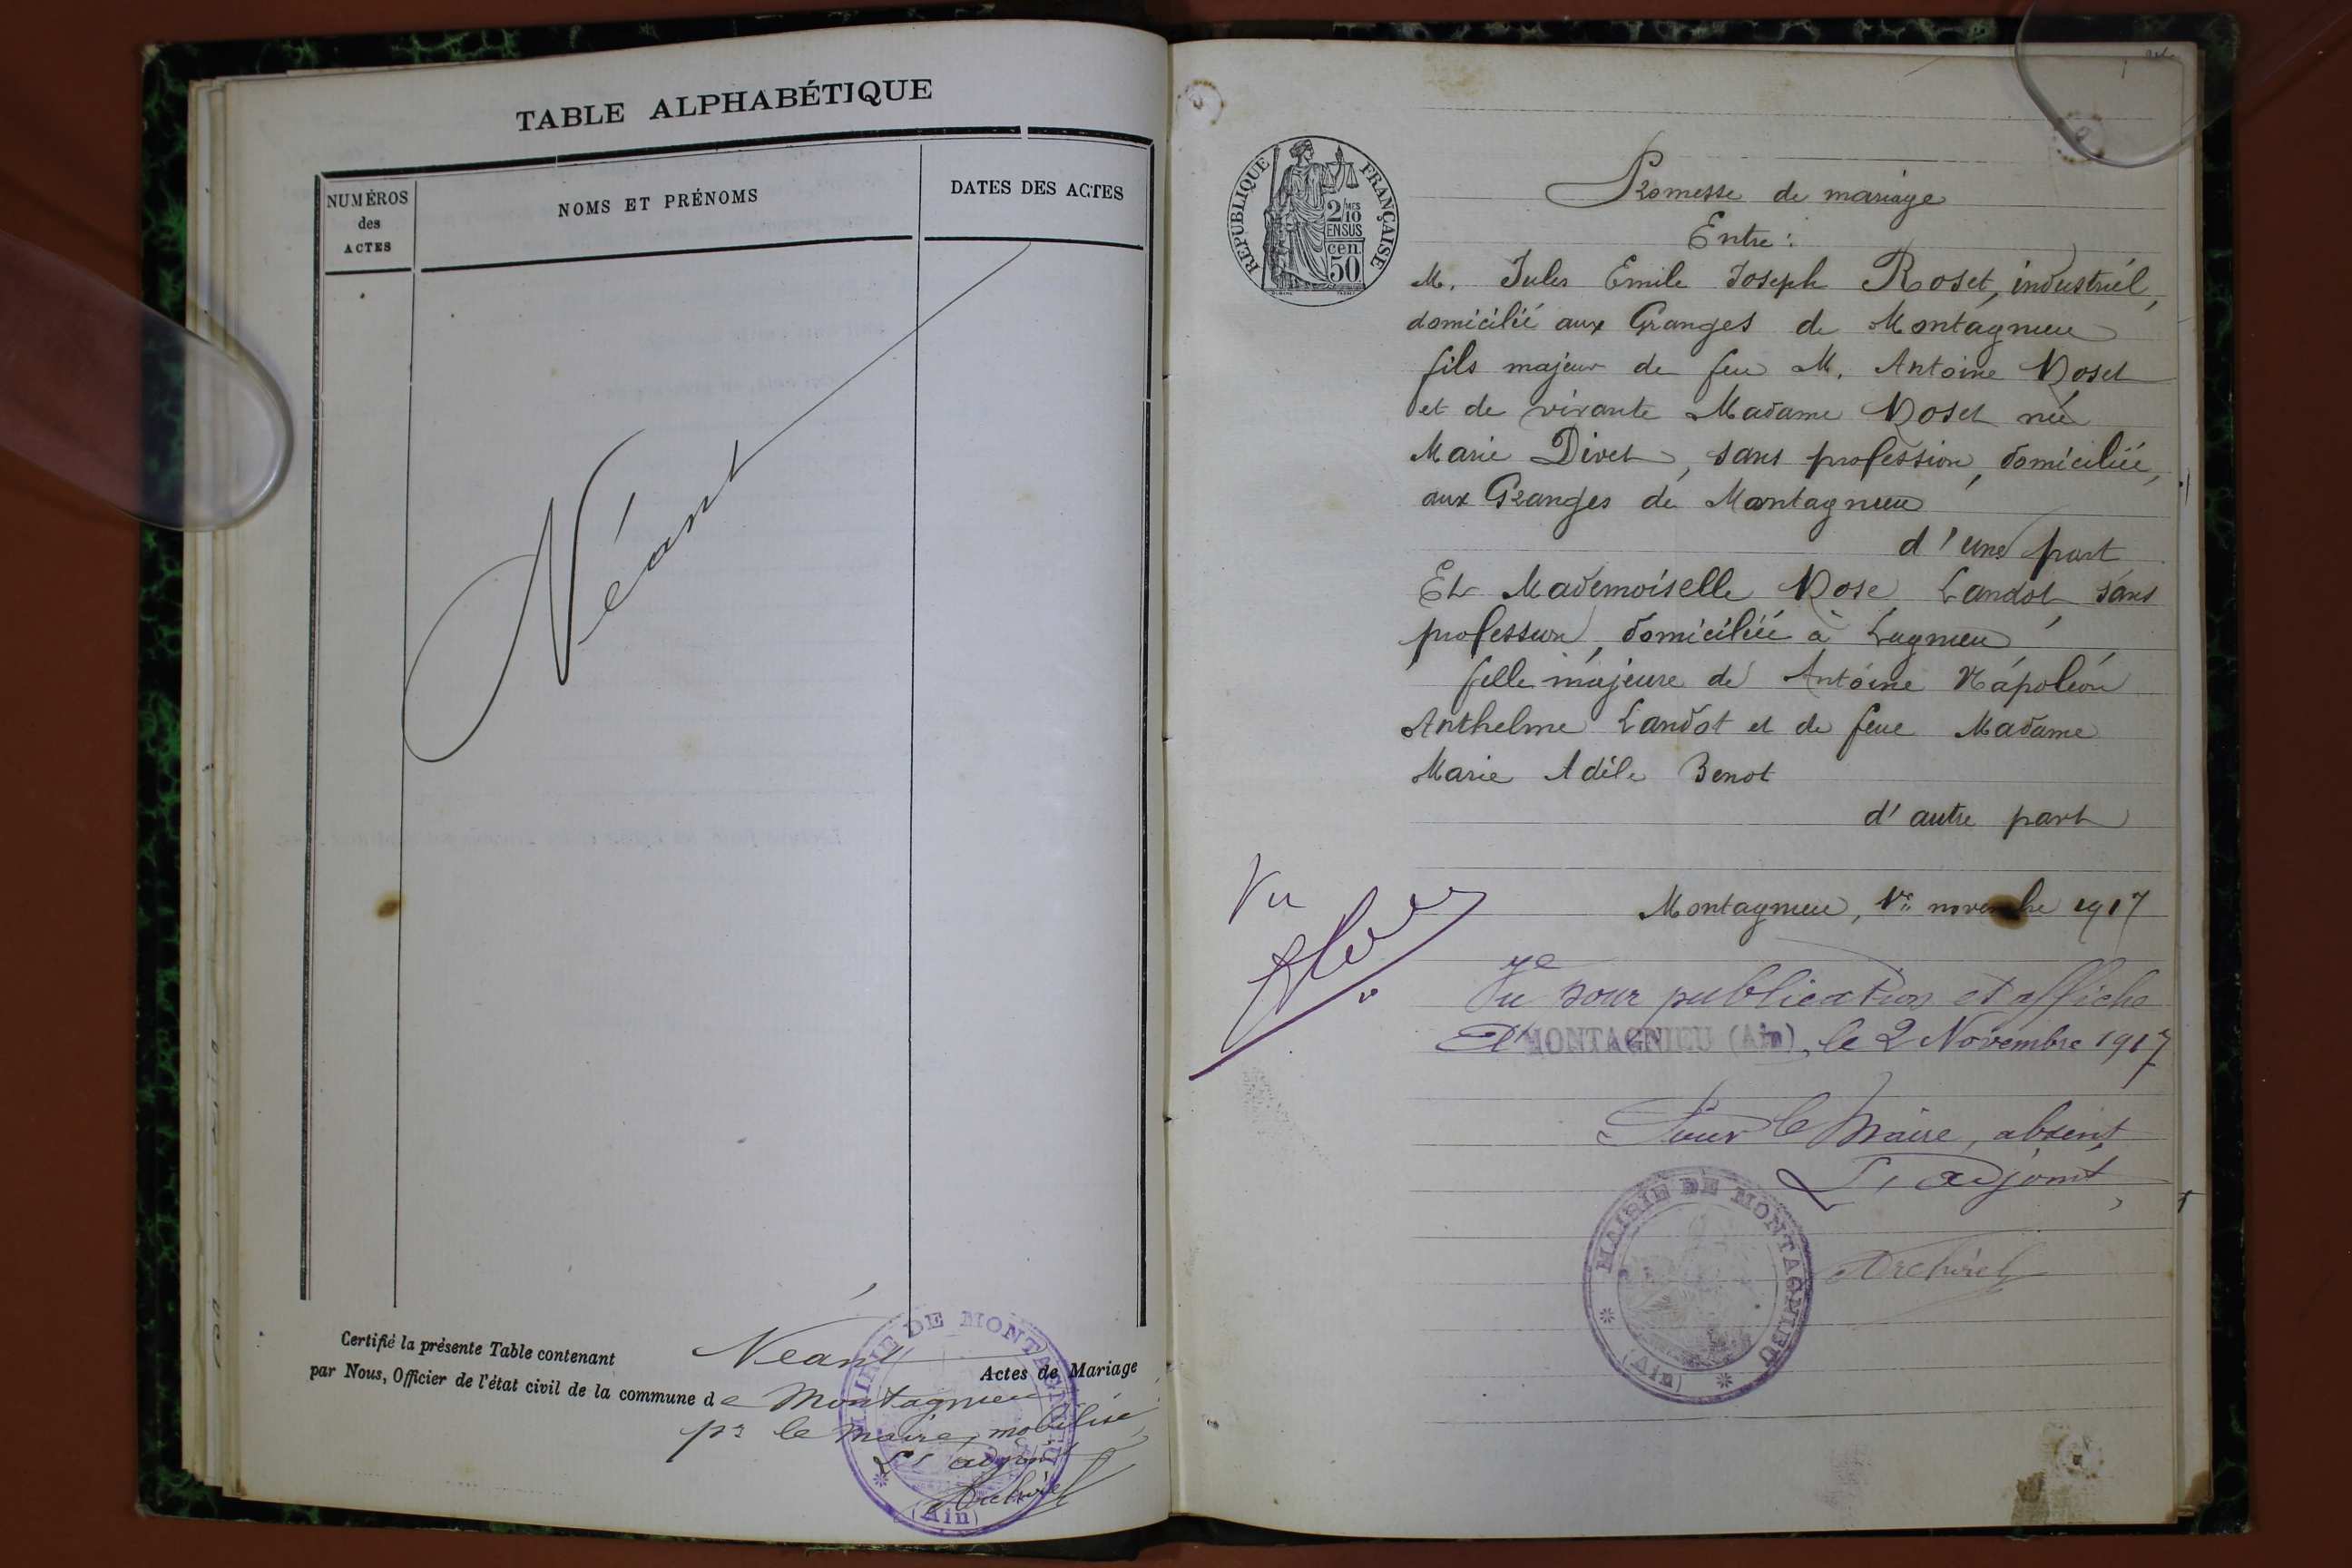 TABLE ALPHABÉTIQUE
NUMÉROS
des
ACTES
NOMS ET PRÉNOMS
DATES DES ACTES
Néant
Certifié la présente Table contenant Néant Actes de Mariage
par Nous, Officier de l'état civil de la commune de Montagnieu
pr le maire, mobilisé,
L'adjoint
MAIRIE DE MONTAGNIEU
(Ain)
RÉPUBLIQUE FRANÇAISE
2/10
MES
EN SUS
50
cen
Promesse de mariage
Entre :
M. Jules Emile Joseph Roset, industriel,
domicilié aux Granges de Montagnieu
fils majeur de feu M. Antoine Roset
et de vivante Madame Roset née
Marie Divet, sans profession, domiciliée,
aux Granges de Montagnieu
d'une part
Et Mademoiselle Rose Landot sans
profession, domiciliée à Lagnieu
fille majeure de Antoine Napoléon
Anthelme Landot et de feue Madame
Marie Adèle Benot
d'autre part
Montagnieu, 1er novembre 1917
Vu
Vu pour publication et affiche
A MONTAGNIEU (Ain), le 2 Novembre 1917
Pour le Maire, absent,
L'adjoint,
MAIRIE DE MONTAGNIEU
(Ain)